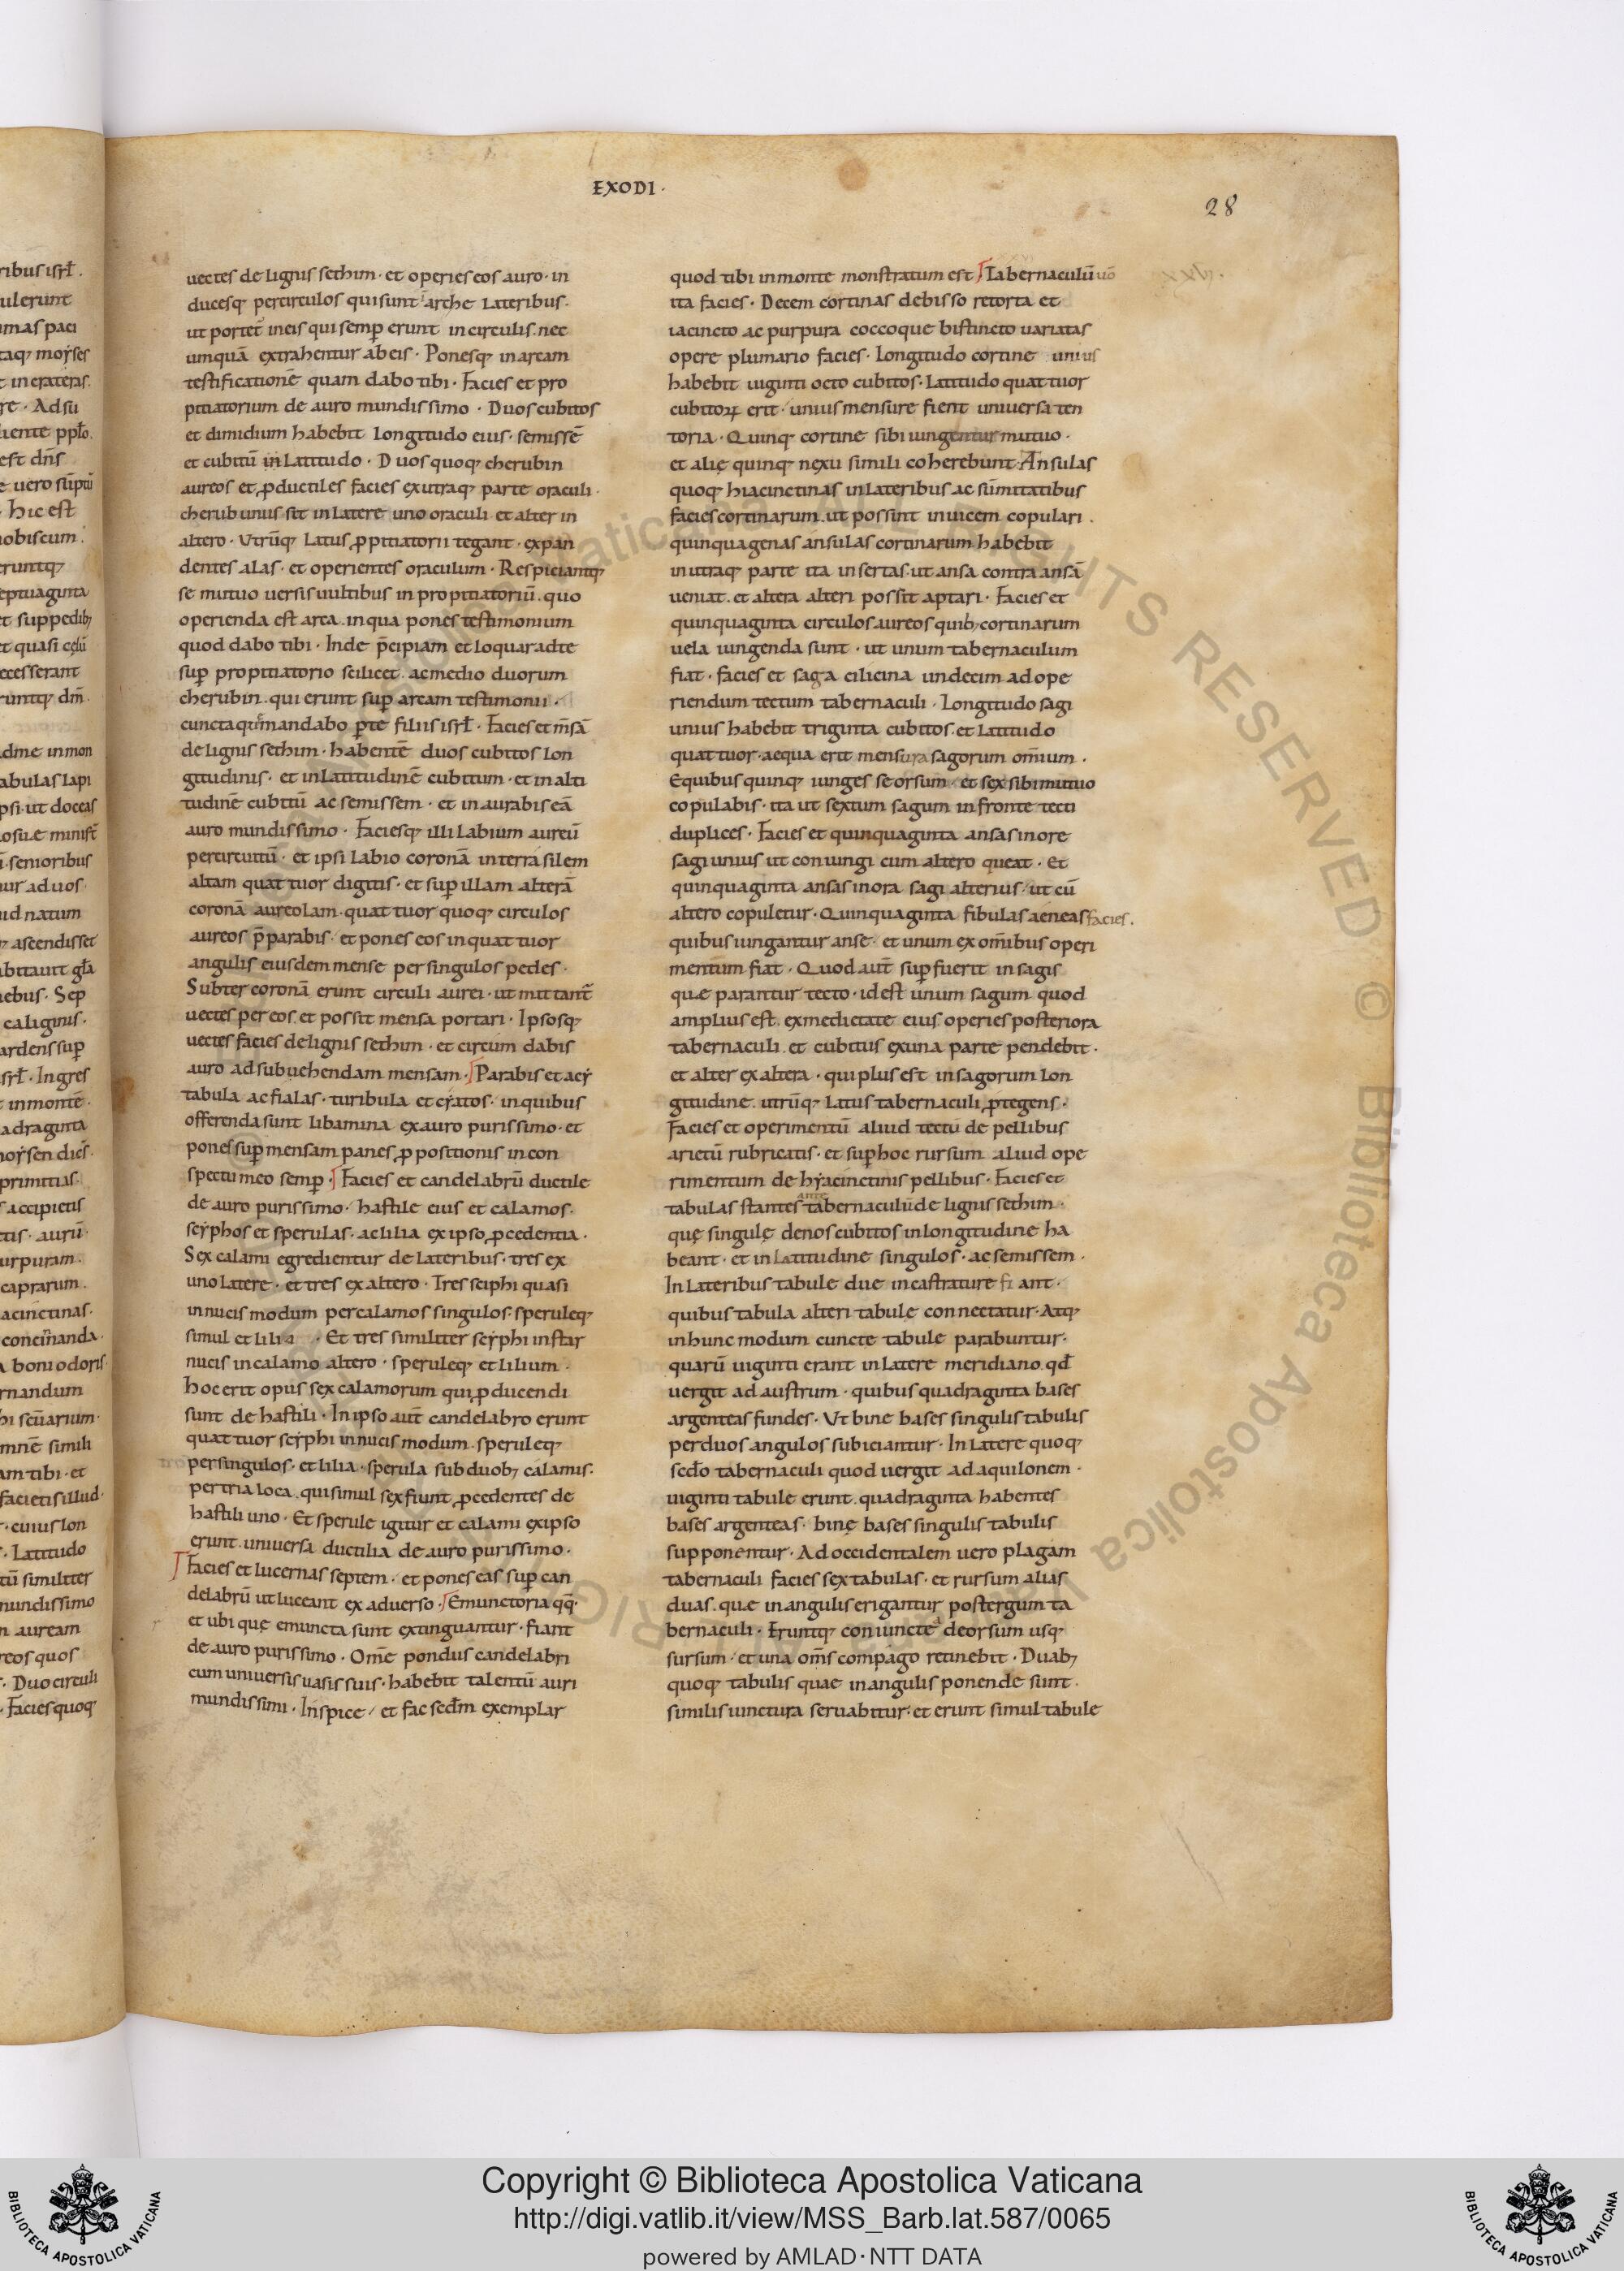 EXODI ·
28
uectes de lignis sethim · et operies eos auro · in
ducesq; per circulos qui sunt arche lateribus ·
ut portet̄ in eis qui semꝑ erunt in circulis · nec
umquā extrahentur ab eis · Ponesq; in arcam
testificationē quam dabo tibi · Facies et pro
pitiatorium de auro mundissimo · Duos cubitos
et dimidium habebit longitudo eius · semissē
et cubitū in latitudo · Duos quoq; cherubin
aureos et ꝓductiles facies ex utraq; parte oraculi ·
cherub unus sit in latere uno oraculi et alter in
altero · Utrūq; latus ꝓpitiatorii tegant · expan
dentes alas · et operientes oraculum · Respiciantq;
se mutuo uersis uultibus in propitiatoriū · quo
operienda est arca in qua pones testimonium
quod dabo tibi · Inde p̄cipiam et loquar ad te
suꝑ propitiatorio scilicet ac medio duorum
cherubin · qui erunt suꝑ arcam testimonii ·
cuncta que mandabo ꝑ te filiis isrł · Facies et m̄sā
de lignis sethim · habentē duos cubitos lon
gitudinis · et in latitudinē cubitum · et in alti
tudinē cubitū ac semissem · et inaurabis eā
auro mundissimo · Faciesq; illi labium aureū
per circuitū · et ipsi labio coronā interrasilem
altam quattuor digitis · et suꝑ illam alterā
coronā aureolam · quattuor quoq; circulos
aureos p̄parabis · et pones eos in quattuor
angulis eiusdem mense per singulos pedes ·
Subter coronā erunt circuli aurei · ut mittant̄
uectes per eos et possit mensa portari · Ipsosq;
uectes facies de lignis sethim · et circum dabis
auro ad subuehendam mensam · Parabis et acy
tabula ac fialas · turibula et cyatos · in quibus
offerenda sunt libamina ex auro purissimo · et
pones suꝑ mensam panes ꝓpositionis in con
spectu meo semꝑ · Facies et candelabrū ductile
de auro purissimo · hastile eius et calamos ·
scyphos et sperulas · ac lilia ex ipso ꝓcedentia ·
Sex calami egredientur de lateribus · tres ex
uno latere · et tres ex altero · Tres sciphi quasi
in nucis modum per calamos singulos · speruleq;
simul et lilia · Et tres similiter scyphi instar
nucis in calamo altero · speruleq; et lilium ·
hoc erit opus sex calamorum qui ꝓducendi
sunt de hastili · In ipso aut̄ candelabro erunt
quattuor scyphi in nucis modum · speruleq;
per singulos · et lilia · sperula sub duob; calamis ·
per tria loca · qui simul sex fiunt ꝓcedentes de
hastili uno · Et sperule igitur et calami ex ipso
erunt · uniuersa ductilia de auro purissimo ·
Facies et lucernas septem · et pones eas suꝑ can
delabrū ut luceant ex aduerso · Emunctoria qq̄ ·
et ubi que emuncta sunt extinguantur · fiant
de auro purissimo · Om̄e pondus candelabri
cum uniuersis uasis suis · habebit talentū auri
mundissimi · Inspice / et fac scd̄m exemplar
quod tibi in monte monstratum est Tabernaculū uō
ita facies · Decem cortinas de bisso retorta et
iacincto ac purpura coccoque bistincto uariatas
opere plumario facies · Longitudo cortine unius
habebit uiginti octo cubitos · Latitudo quattuor
cubitoꝝ erit · unius mensure fient uniuersa ten
toria · Quinq; cortine sibi iungentur mutuo ·
et alię quinq; nexu simili coherebunt · Ansulas
quoq; hiacinctinas in lateribus ac sūmitatibus
facies cortinarum · ut possint inuicem copulari ·
quinquagenas ansulas cortinarum habebit
in utraq; parte ita insertas · ut ansa contra ansā
ueniat et altera alteri possit aptari · Facies et
quinquaginta circulos aureos quib; cortinarum
uela iungenda sunt · ut unum tabernaculum
fiat · facies et saga cilicina undecim ad ope
riendum tectum tabernaculi · Longitudo sagi
unius habebit triginta cubitos et latitudo
quattuor · aequa erit mensura sagorum om̄ium ·
E quibus quinq; iunges seorsum · et sex sibi mutuo
copulabis · ita ut sextum sagum in fronte tecti
duplices · Facies et quinquaginta ansas in ore
sagi unius ut coniungi cum altero queat · Et
quinquaginta ansas in ora sagi alterius · ut cū
altero copuletur · Quinquaginta fibulas aeneas facies ·
quibus iungantur anse · et unum ex om̄ibus operi
mentum fiat · Quod aut̄ suꝑfuerit in sagis
que parantur tecto · id est unum sagum quod
amplius est ex medietate eius operies posteriora
tabernaculi et cubitus ex una parte pendebit ·
et alter ex altera · qui plus est in sagorum lon
gitudine utrūq; latus tabernaculi ꝓtegens ·
Facies et operimentū aliud tectu de pellibus
arietū rubricatis · et suꝑ hoc rursum aliud ope
rimentum de hyacinctinis pellibus · Facies et
ante
tabulas stantes tabernaculū de lignis sethim ·
que singulę denos cubitos in longitudine ha
beant · et in latitudine singulos · ac semissem ·
In lateribus tabule due incastrature fiant ·
quibus tabula alteri tabule connectatur · Atq;
in hunc modum cuncte tabule parabuntur ·
quarū uiginti erant in latere meridiano qđ
uergit ad austrum · quibus quadraginta bases
argenteas fundes · Ut bine bases singulis tabulis
per duos angulos subiciantur · In latere quoq;
scđo tabernaculi quod uergit ad aquilonem ·
uiginti tabule erunt quadraginta habentes
bases argenteas · binę bases singulis tabulis
supponentur · Ad occidentalem uero plagam
tabernaculi facies sex tabulas · et rursum alias
duas que in angulis erigantur post ergum ta
bernaculi · Eruntq; coniuncte deorsum usq;
sursum · et una om̄s compago retinebit · Duab;
quoq; tabulis quae in angulis ponende sunt ·
similis iunctura seruabitur · et erunt simul tabule
Copyright © Biblioteca Apostolica Vaticana
http://digi.vatlib.it/view/MSS_Barb.lat.587/0065
powered by AMLAD·NTT DATA
BIBLIOTECA APOSTOLICA VATICANA
BIBLIOTECA APOSTOLICA VATICANA